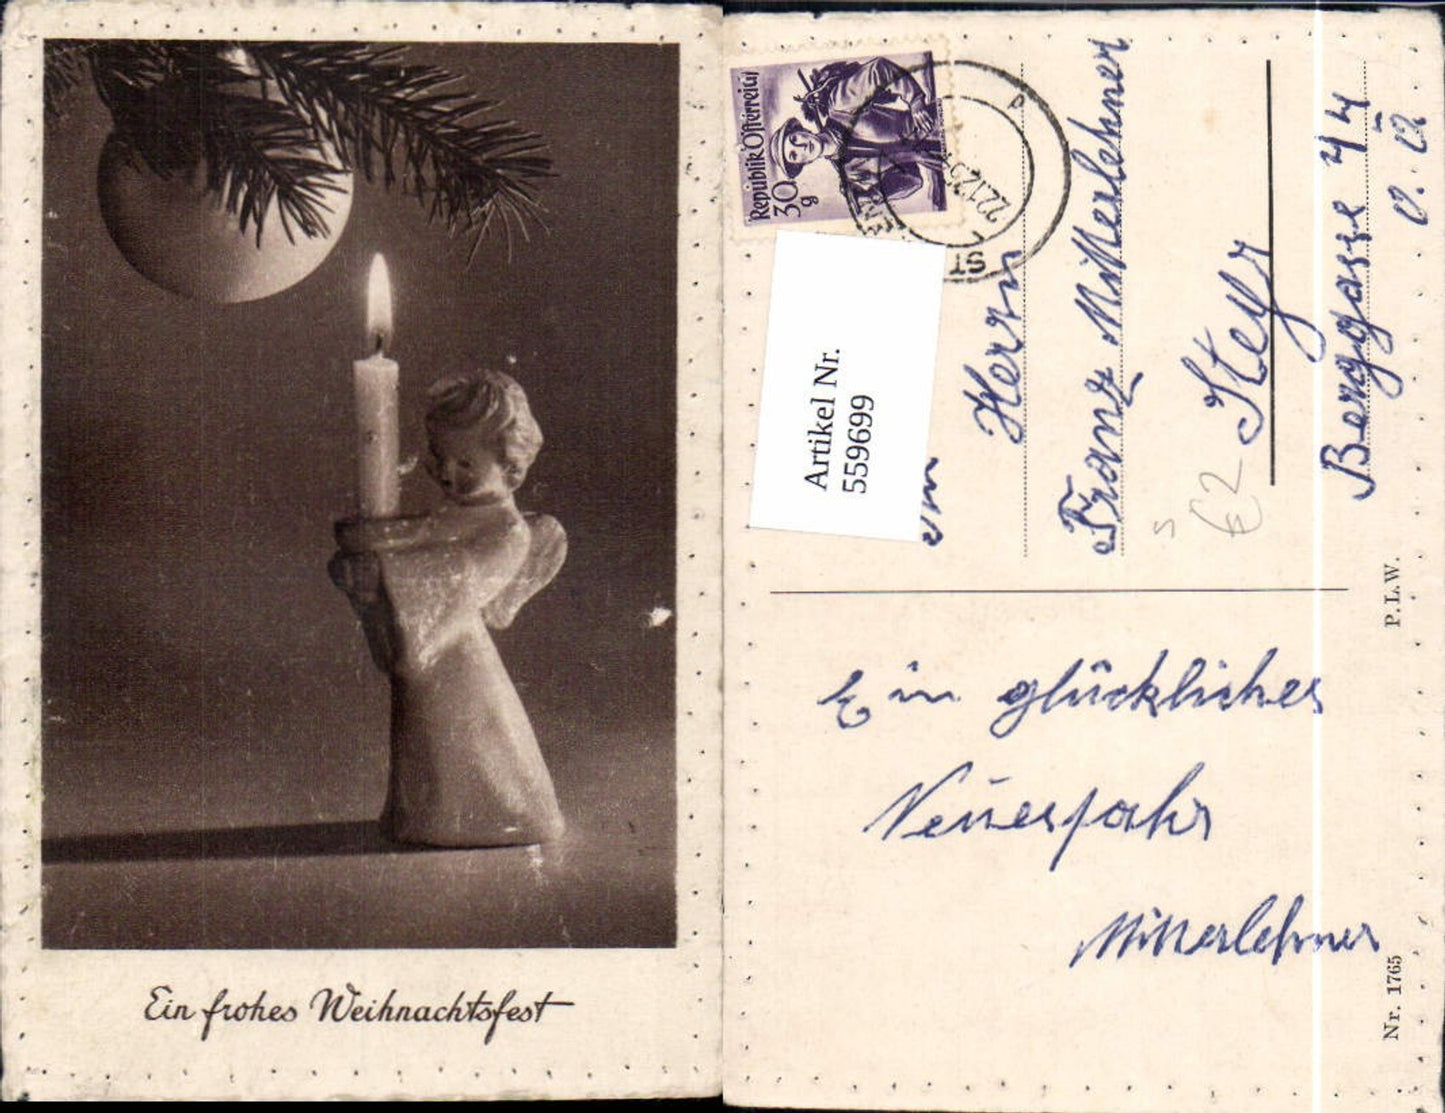 Ein frohes Weihnachtsfest
Republik Österreich
30
g
22.12.5
ST
Artikel Nr.
559699
Herrn
Franz Mitterlehner
Steyr
Berggasse 44
O. Ö.
€ 2
P. L. W.
Ein glückliches
Neuesjahr
Mitterlehner
Nr. 1765